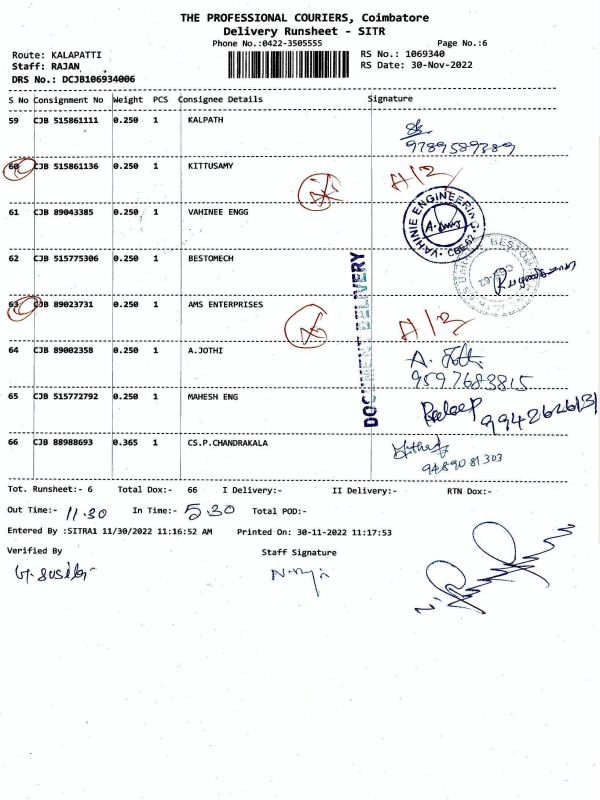 THE PROFESSIONAL COURIERS, Coimbatore
Delivery Runsheet - SITR
Phone No.:0422-3505555 Page No.:6
Route: KALAPATTI RS No.: 1069340
Staff: RAJAN RS Date: 30-Nov-2022
DRS No.: DCJB106934006
S No Consignment No Weight PCS Consignee Details Signature
59 CJB 515861111 0.250 1 KALPATH
9789589389
60 CJB 515861136 0.250 1 KITTUSAMY
61 CJB 89043385 0.250 1 VAHINEE ENGG
VAHINIE ENGINEERING
62 CJB 515775306 0.250 1 BESTOMECH
DOCUMENT DELIVERY
63 CJB 89023731 0.250 1 AMS ENTERPRISES
64 CJB 89002358 0.250 1 A.JOTHI
A. Jothi
9597683815
65 CJB 515772792 0.250 1 MAHESH ENG
9942626131
66 CJB 88988693 0.365 1 CS.P.CHANDRAKALA
9489081303
Tot. Runsheet:- 6 Total Dox:- 66 I Delivery:- II Delivery:- RTN Dox:-
Out Time:- 11.30 In Time:- 5.30 Total POD:-
Entered By :SITRA1 11/30/2022 11:16:52 AM Printed On: 30-11-2022 11:17:53
Verified By Staff Signature